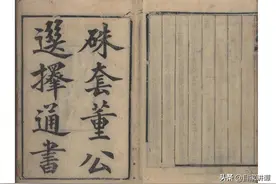 硃套董公
選擇通書
头条